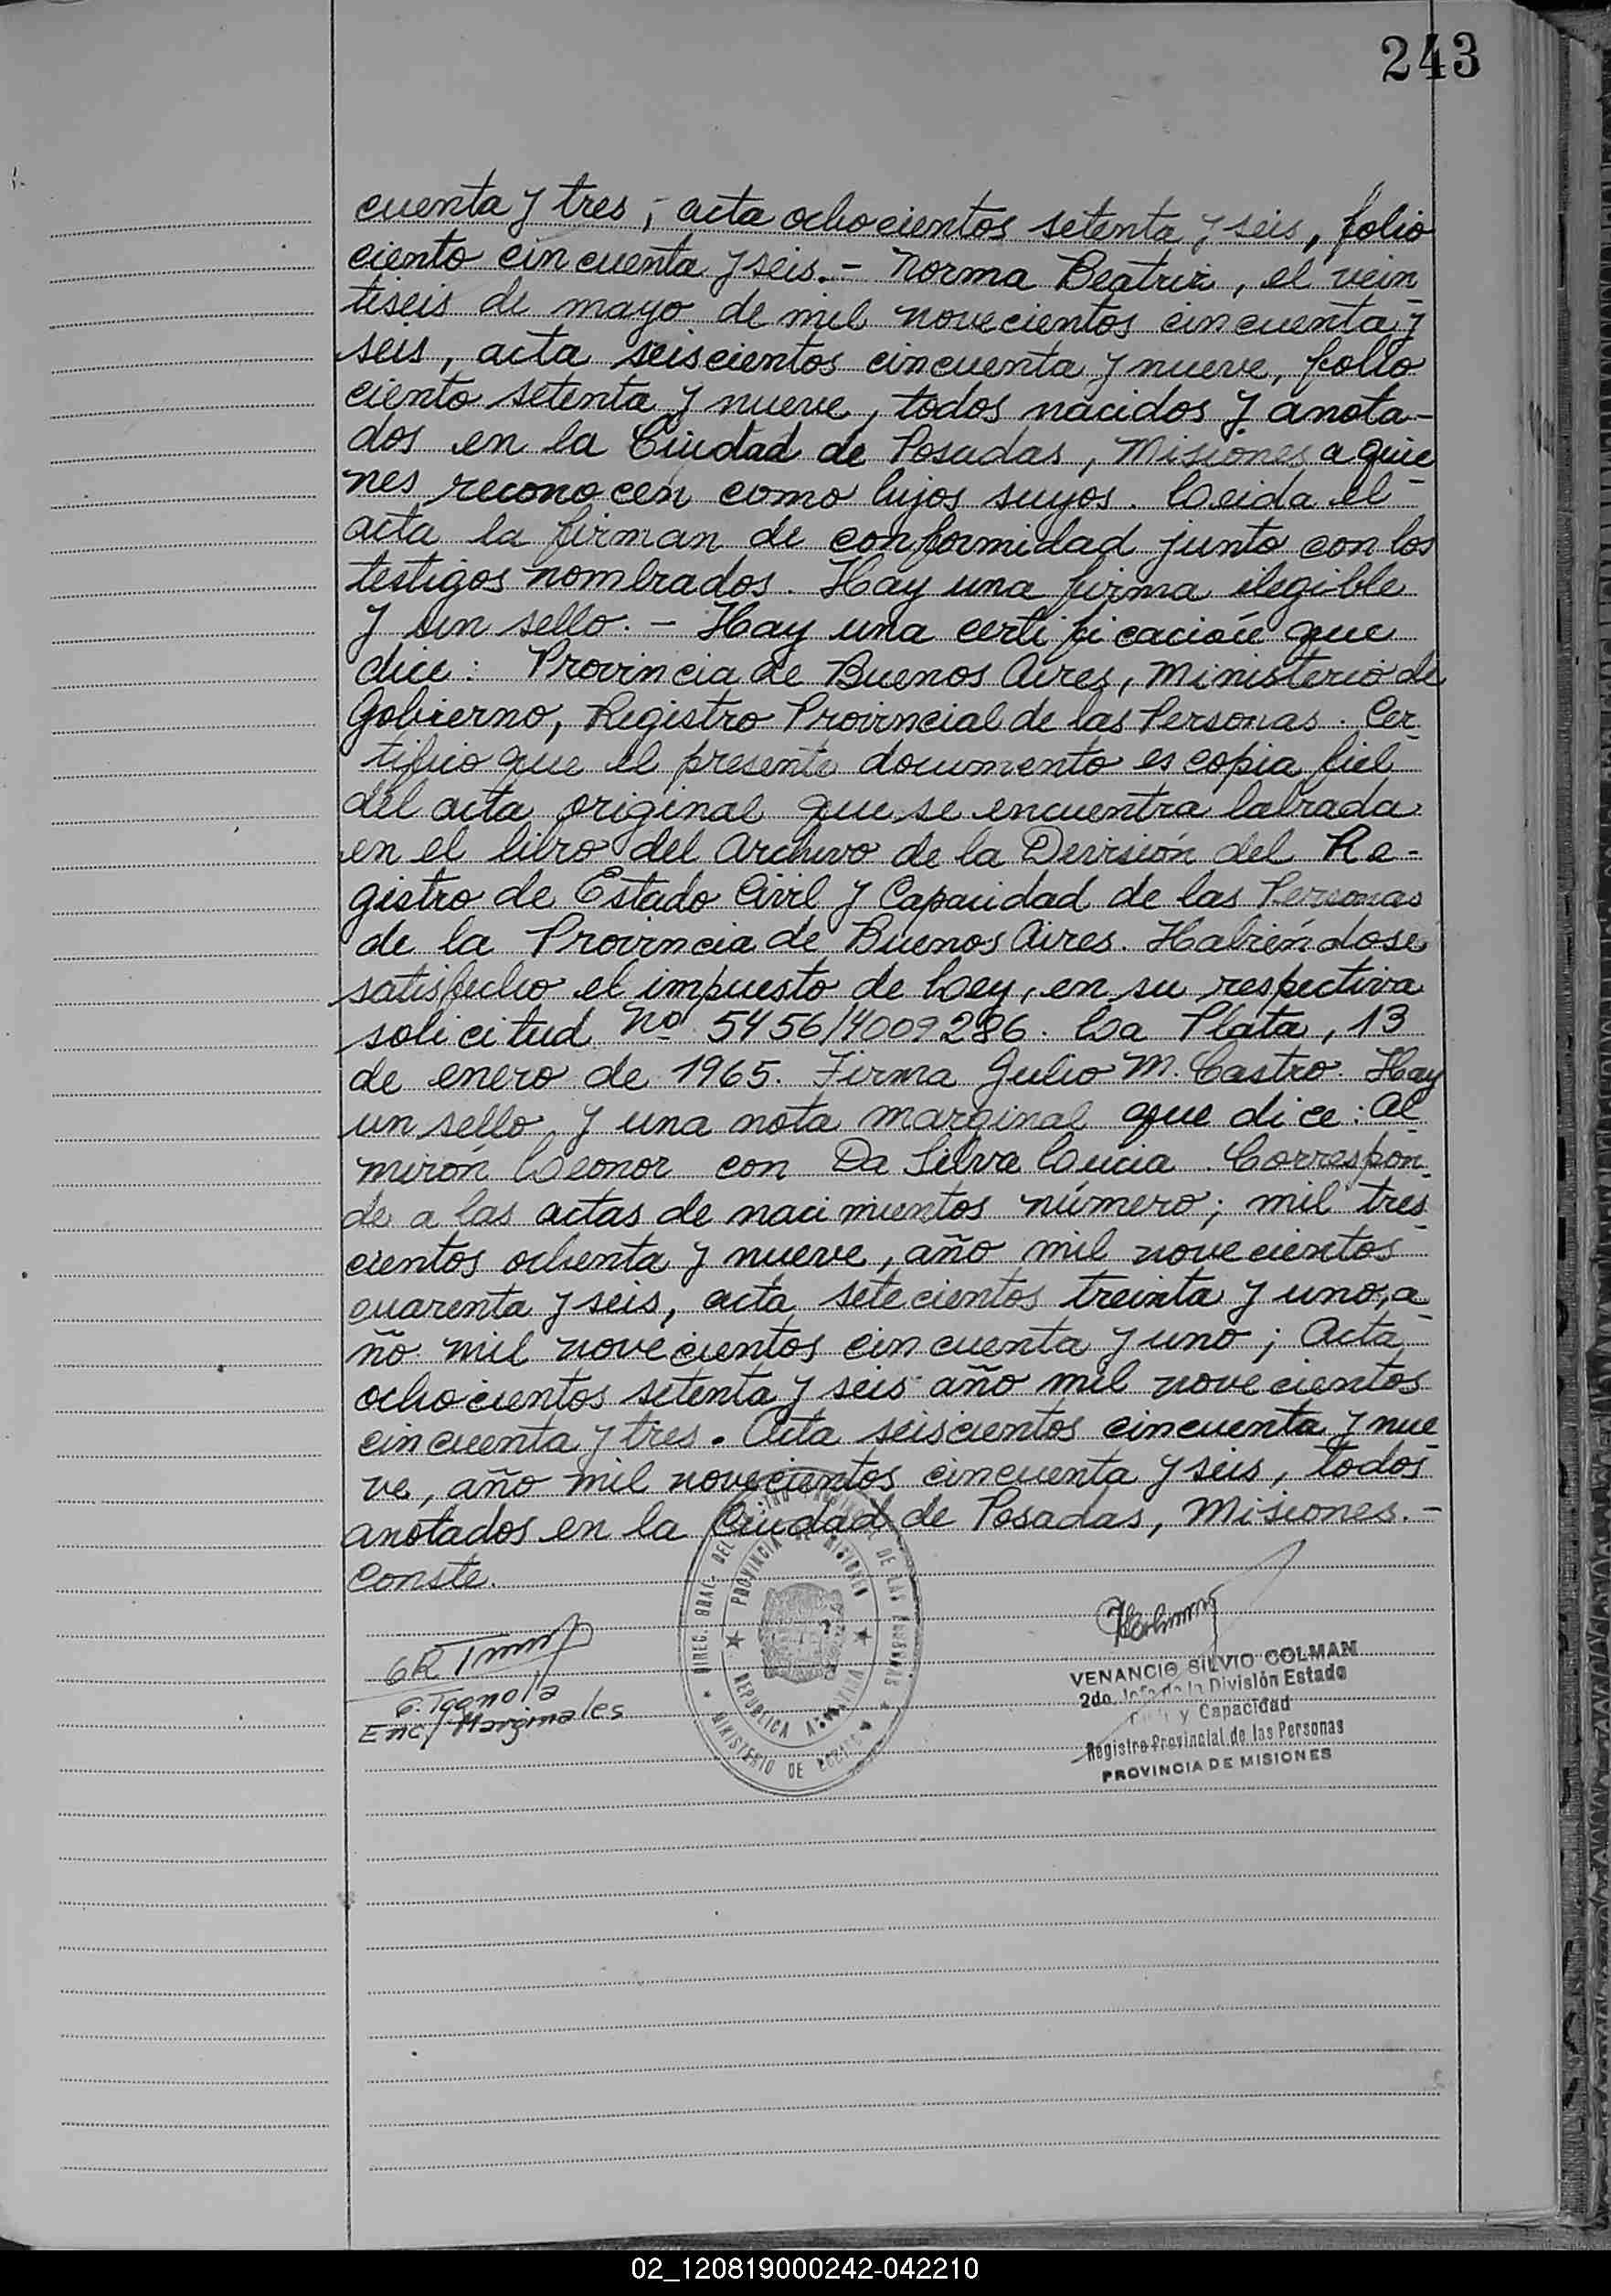 243
cuenta y tres, acta ochocientos setenta y seis, folio
ciento cincuenta y seis.- Norma Beatriz, el vein
tiseis de mayo de mil novecientos cincuenta y
seis, acta seiscientos cincuenta y nueve, folio
ciento setenta y nueve, todos nacidos y anota-
dos en la Ciudad de Posadas, Misiones a quie-
nes reconocen como hijos suyos. Leida el
acta la firman de conformidad junto con los
testigos nombrados. Hay una firma ilegible
y un sello.- Hay una certificación que
dice: Provincia de Buenos Aires, Ministerio de
Gobierno, Registro Provincial de las Personas. Cer-
tifico que el presente documento es copia fiel
del acta original que se encuentra labrada
en el libro del Archivo de la Devisión del Re-
gistro de Estado Civil y Capacidad de las Personas
de la Provincia de Buenos Aires. Habiéndose
satisfecho el impuesto de Ley, en su respectiva
solicitud Nº 5456/4009286. La Plata, 13
de enero de 1965. Firma Julio M. Castro. Hay
un sello y una nota marginal que dice: Al-
mirón Leonor con Da Silva Lucia. Correspon-
de a las actas de nacimientos número; mil tres
cientos ochenta y nueve, año mil novecientos
cuarenta y seis, acta setecientos treinta y uno, a-
ño mil novecientos cincuenta y uno; Acta
ochocientos setenta y seis año mil novecientos
cincuenta y tres. Acta seiscientos cincuenta y nue-
ve, año mil novecientos cincuenta y seis, todos
anotados en la Ciudad de Posadas, Misiones.-
Conste.
Enc/ Marginales
DIREC. GRAL. DEL DE LAS PERSONAS
PROVINCIA DE MISIONES
REPUBLICA ARGENTINA
MINISTERIO DE
VENANCIO SILVIO COLMAN
2do. Jefe de la División Estado
y Capacidad
Registro Provincial de las Personas
PROVINCIA DE MISIONES
02_120819000242-042210